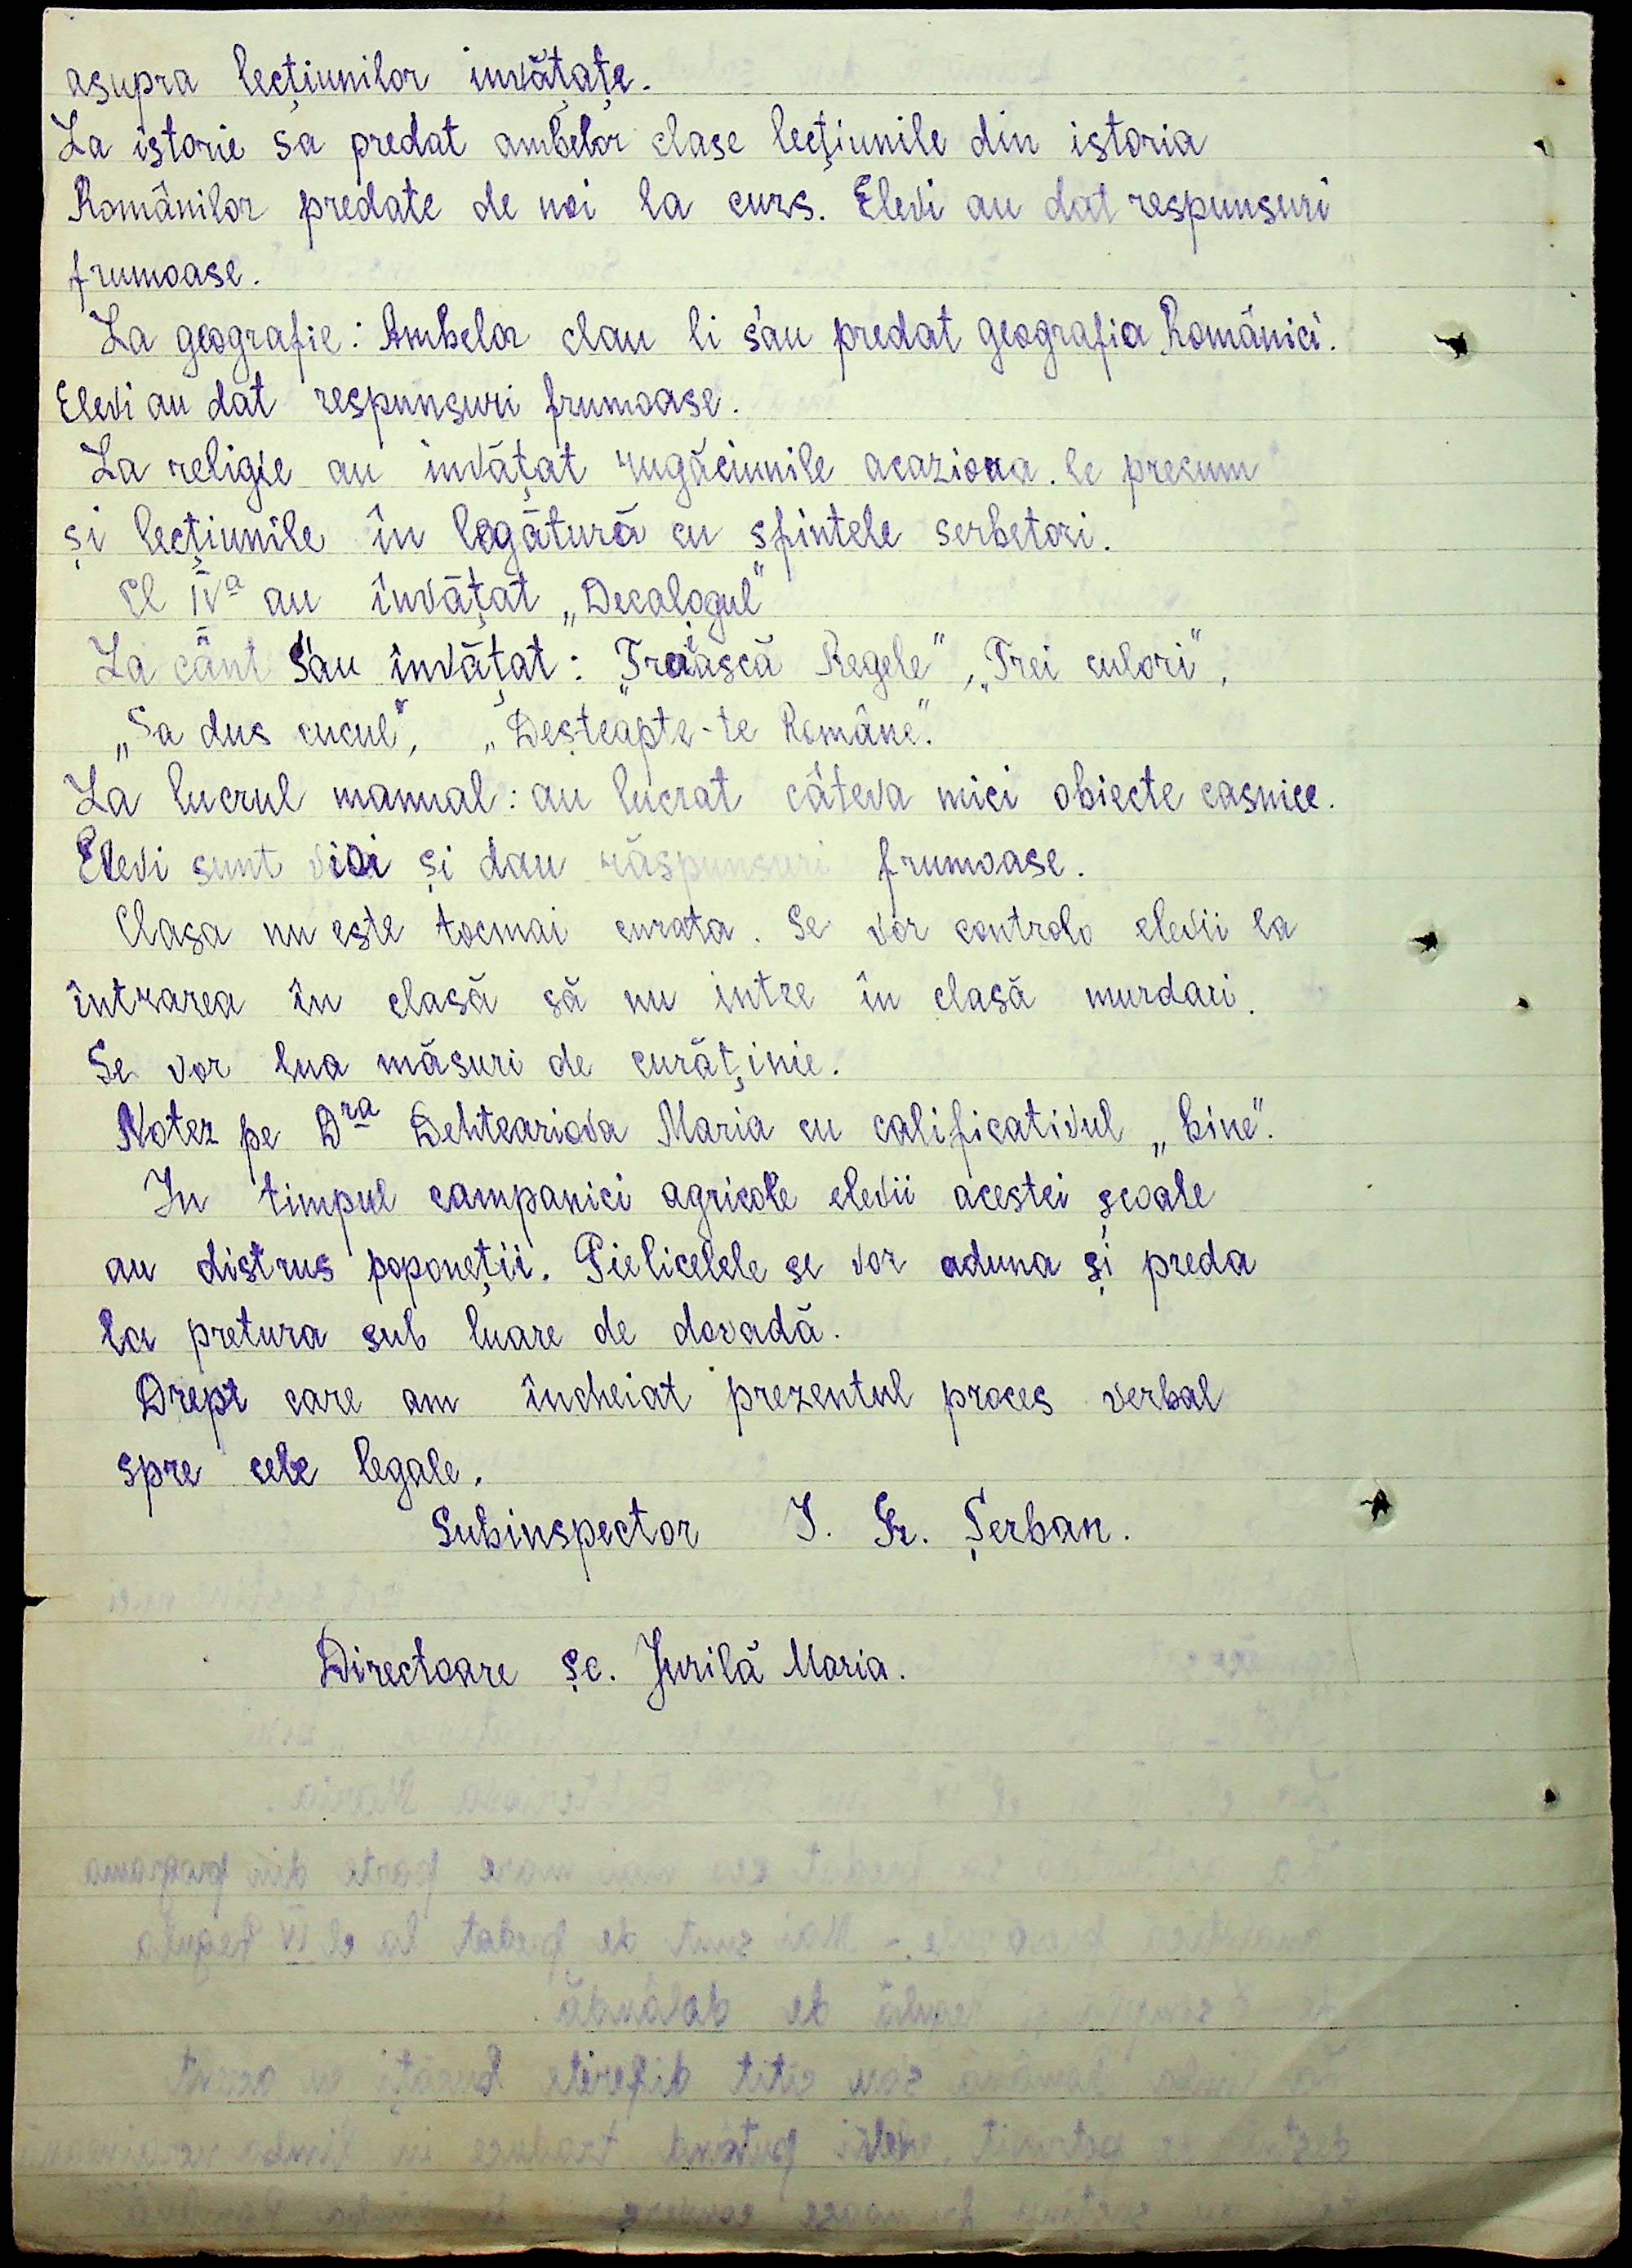 asupra lecțiunilor invățațe.
La istorie sa predat ambelor clase lecțiunile din istoria
Românilor predate de noi la curs. Elevi au dat respunsuri
frumoase.
La geografie: Ambelor clau li s'au predat geografia României.
Elevi au dat respunsuri frumoase.
La religie au invățat rugăciunile acaziona.le precum
și lecțiunile în legătură cu sfintele serbetori.
Cl IVa au învățat „Decalogul"
La cânt S'au învățat: „Traiască Regele", „Trei culori",
„Sa dus cucul", „Deșteapte-te Române".
La lucrul manual: au lucrat câteva mici obiecte casnice.
Elevi sunt vioi și dau răspunsuri frumoase.
Clasa nu este tocmai curata. Se vor controlo elevii la
întrarea în clasă să nu intre în clasă murdari.
Se vor lua măsuri de curăținie.
Notez pe Dra Dehteariova Maria cu calificativul „bine".
In timpul campaniei agricole elevii acestei școale
au distrus poponeții. Pielicelele se vor aduna și preda
la pretura sub luare de dovadă.
Drept care am încheiat prezentul proces verbal
spre cele legale.
Subinspector I. Gr. Șerban.
Directoare șc. Jurilă Maria.